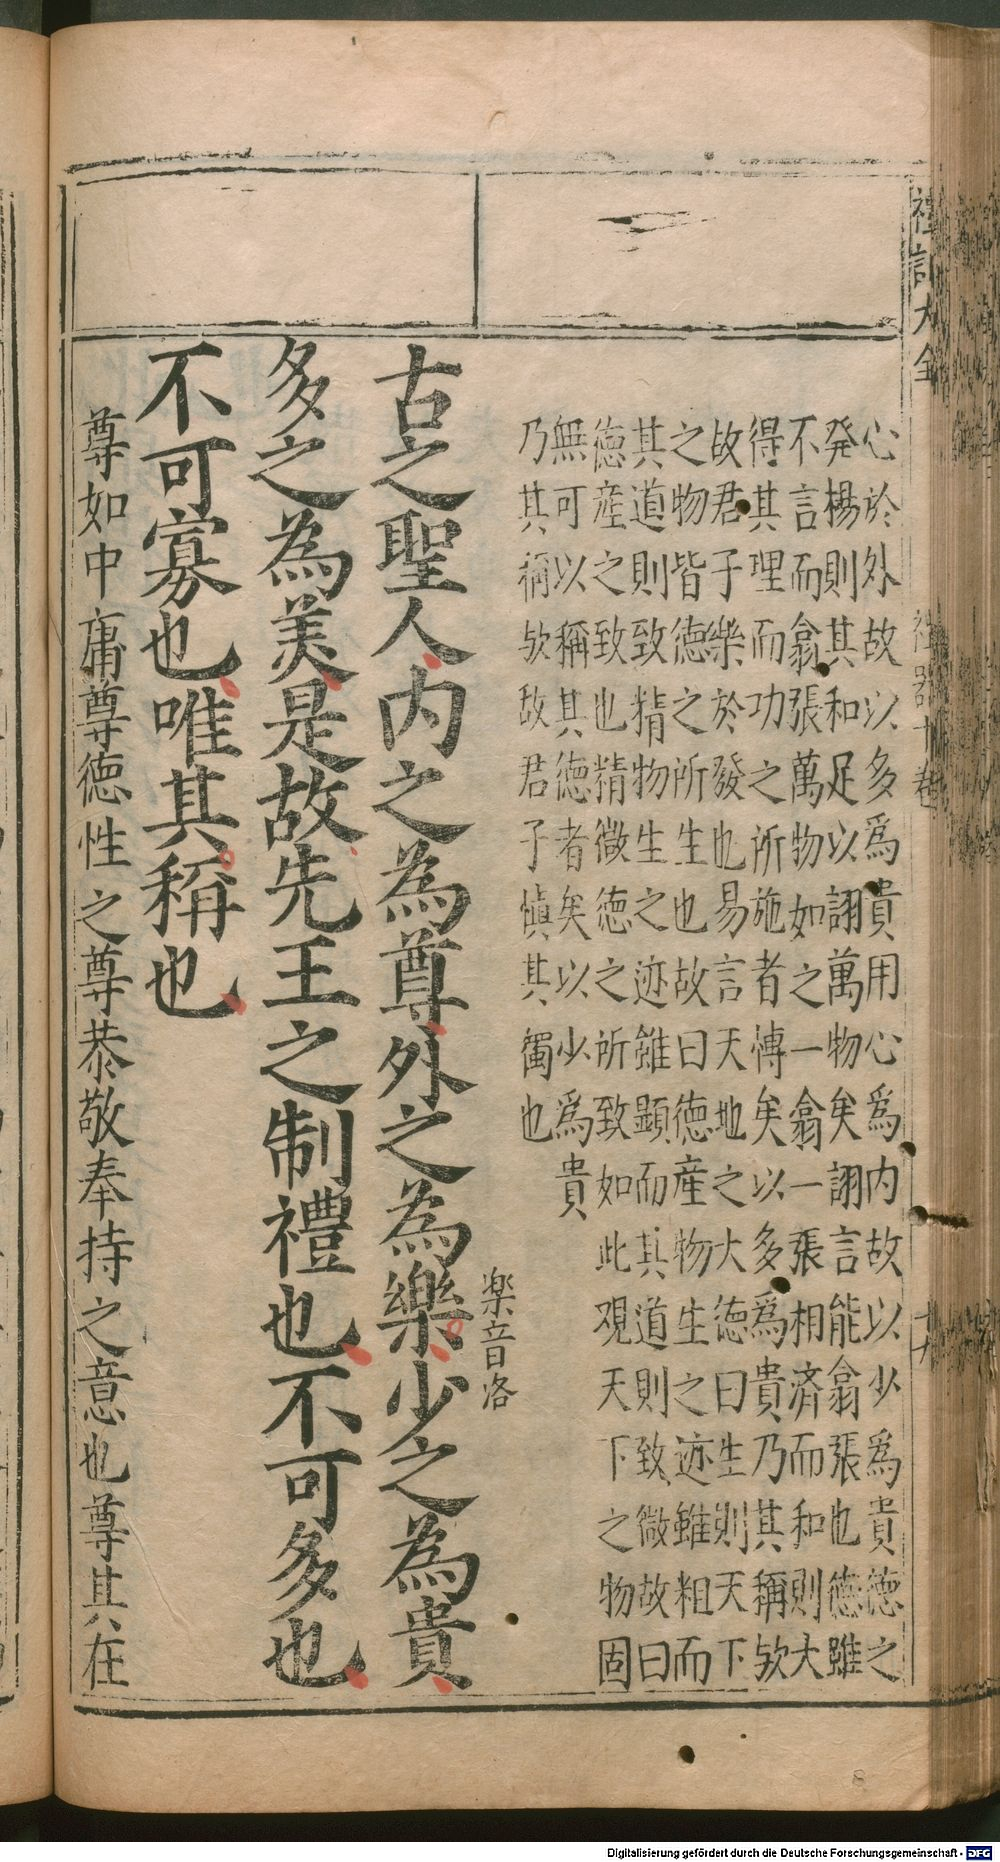 心於外故以多爲貴用心爲内故以少爲貴德之
発楊則其和足以詡萬物矣詡言能翕張也德雖
不言而翕張萬物如之一翕一張相濟而和則大
得其理而功之所施者博矣以多爲貴乃其稱欤
故君子樂於發也易言天地之大德曰生則天下
之物皆德之所生也故曰德産物生之迹雖粗而
其道則致精物生之迹雖顯而其道則致微故曰
德産之致也精微德之所致如此观天下之物固
無可以稱其德者矣以少爲貴
乃其稱欤故君子慎其獨也
楽音洛
古之聖人内之為尊外之為樂少之為貴
多之為美是故先王之制禮也不可多也
不可寡也唯其稱也
尊如中庸尊德性之尊恭敬奉持之意也尊其在
大全
十卷
8
Digitalisierung gefördert durch die Deutsche Forschungsgemeinschaft - DFG